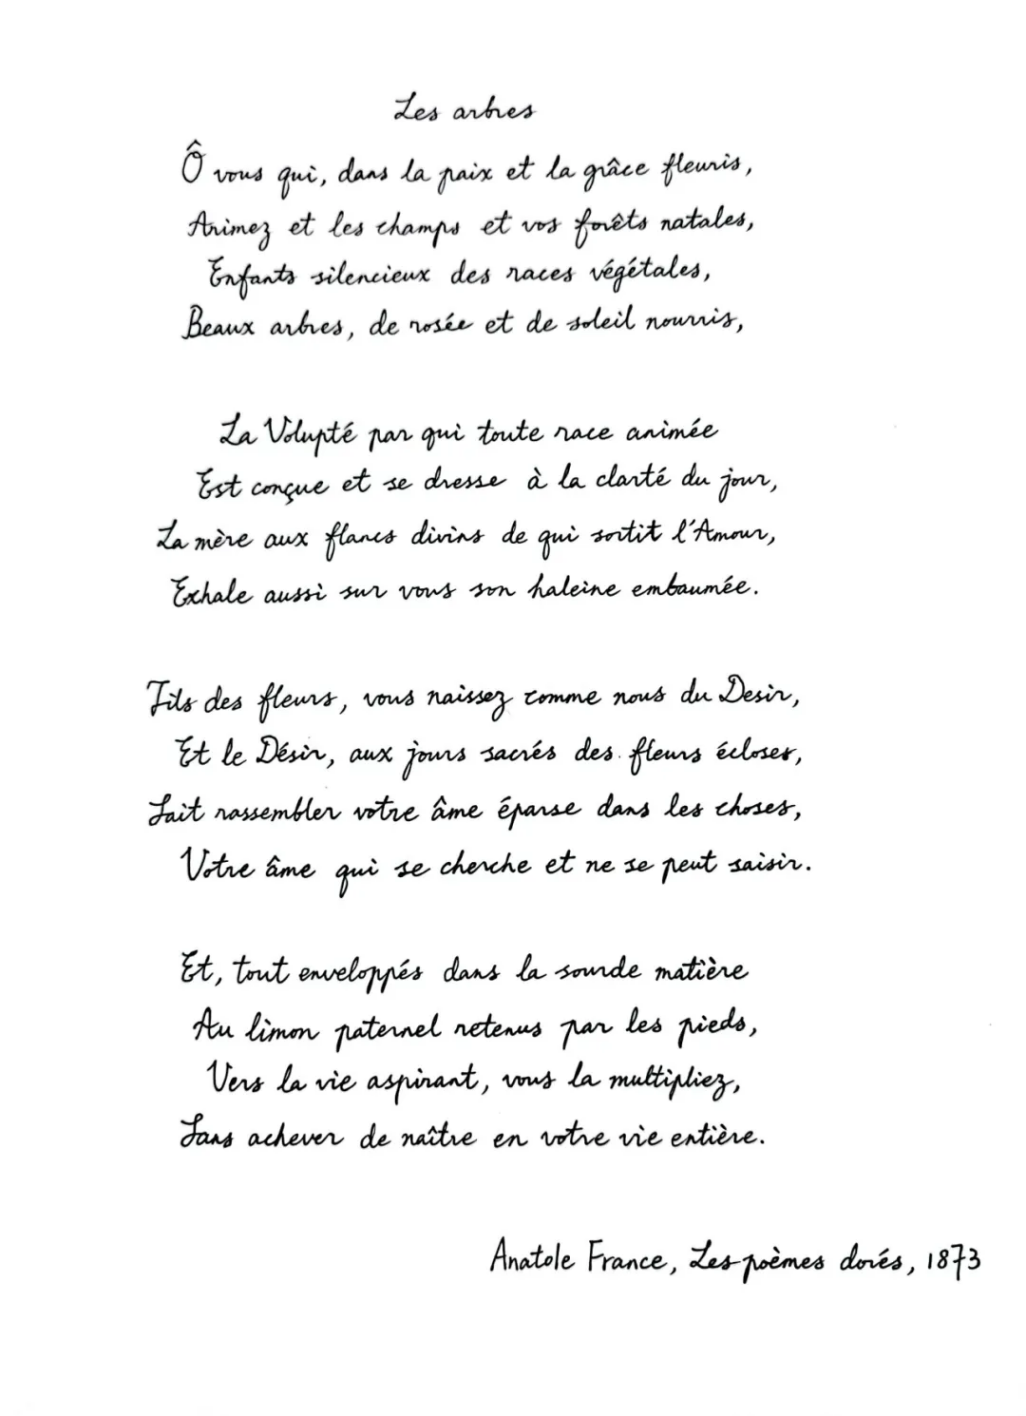 Les arbres
Ô vous qui, dans la paix et la grâce fleuris,
Animez et les champs et vos forêts natales,
Enfants silencieux des races végétales,
Beaux arbres, de rosée et de soleil nourris,
La Volupté par qui toute race animée
Est conçue et se dresse à la clarté du jour,
La mère aux flancs divins de qui sortit l'Amour,
Exhale aussi sur vous son haleine embaumée.
Fils des fleurs, vous naissez comme nous du Desir,
Et le Désir, aux jours sacrés des fleurs écloses,
Fait rassembler votre âme éparse dans les choses,
Votre âme qui se cherche et ne se peut saisir.
Et, tout enveloppés dans la sourde matière
Au limon paternel retenus par les pieds,
Vers la vie aspirant, vous la multipliez,
Sans achever de naître en votre vie entière.
Anatole France, Les poèmes dorés, 1873